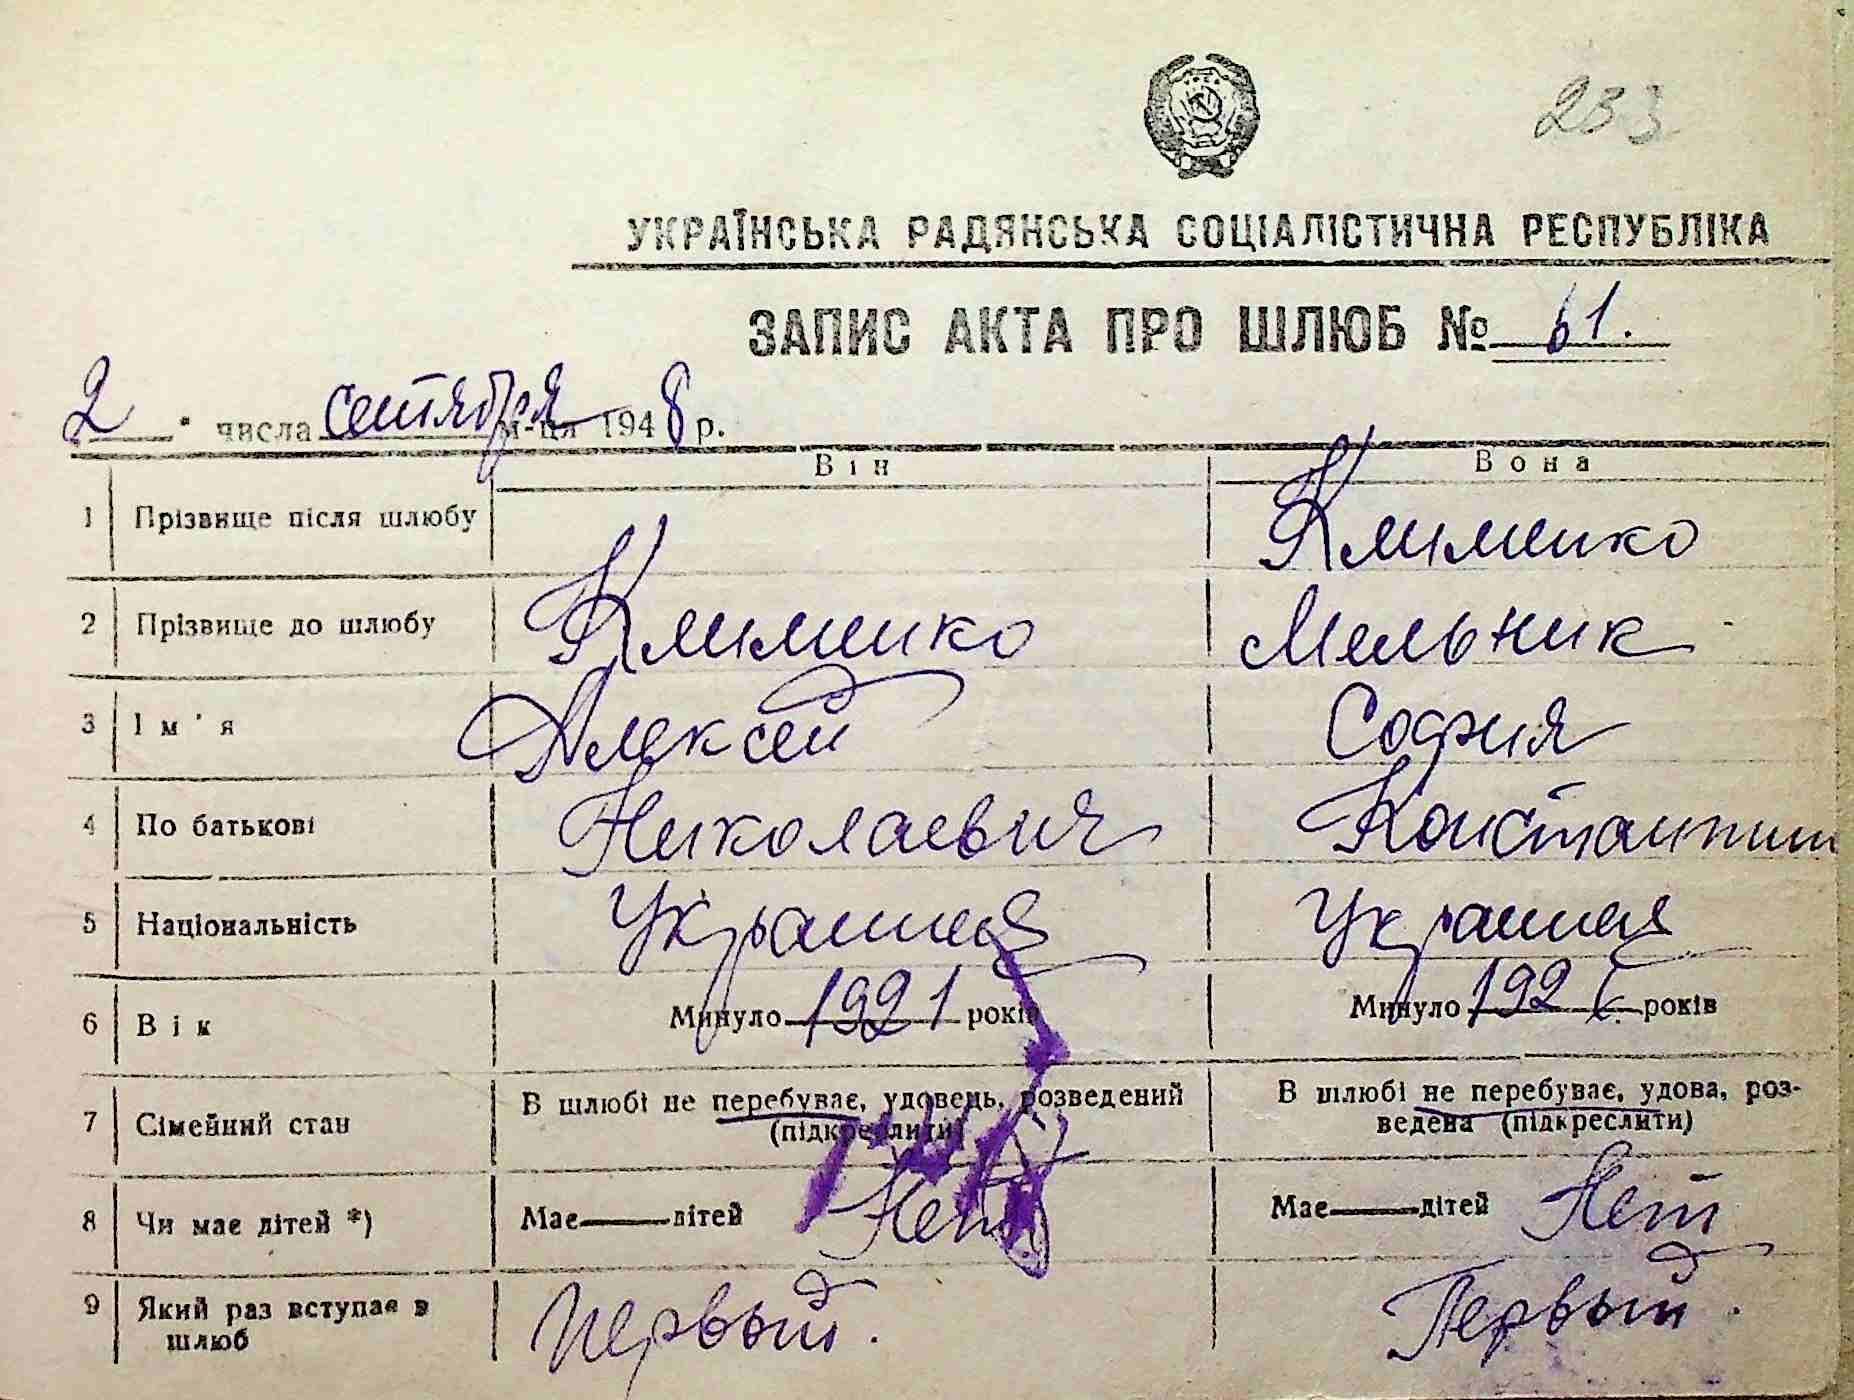 233
УКРАЇНСЬКА РАДЯНСЬКА СОЦІАЛІСТИЧНА РЕСПУБЛІКА
ЗАПИС АКТА ПРО ШЛЮБ № 61.
2 " числа сентября м-ця 1948 р.
Він Вона
1 Прізвище після шлюбу Клименко
2 Прізвище до шлюбу Клименко Мельник
3 Ім'я Алексей София
4 По батькові Николаевич Константин
5 Національність
6 Вік Минуло 1921 років Минуло 192 років
7 Сімейний стан В шлюбі не перебуває, удовець, розведений (підкреслити) В шлюбі не перебуває, удова, роз-
ведена (підкреслити)
8 Чи має дітей *) Має дітей Нет Має дітей Нет
9 Який раз вступає в Первый. Первый.
шлюб